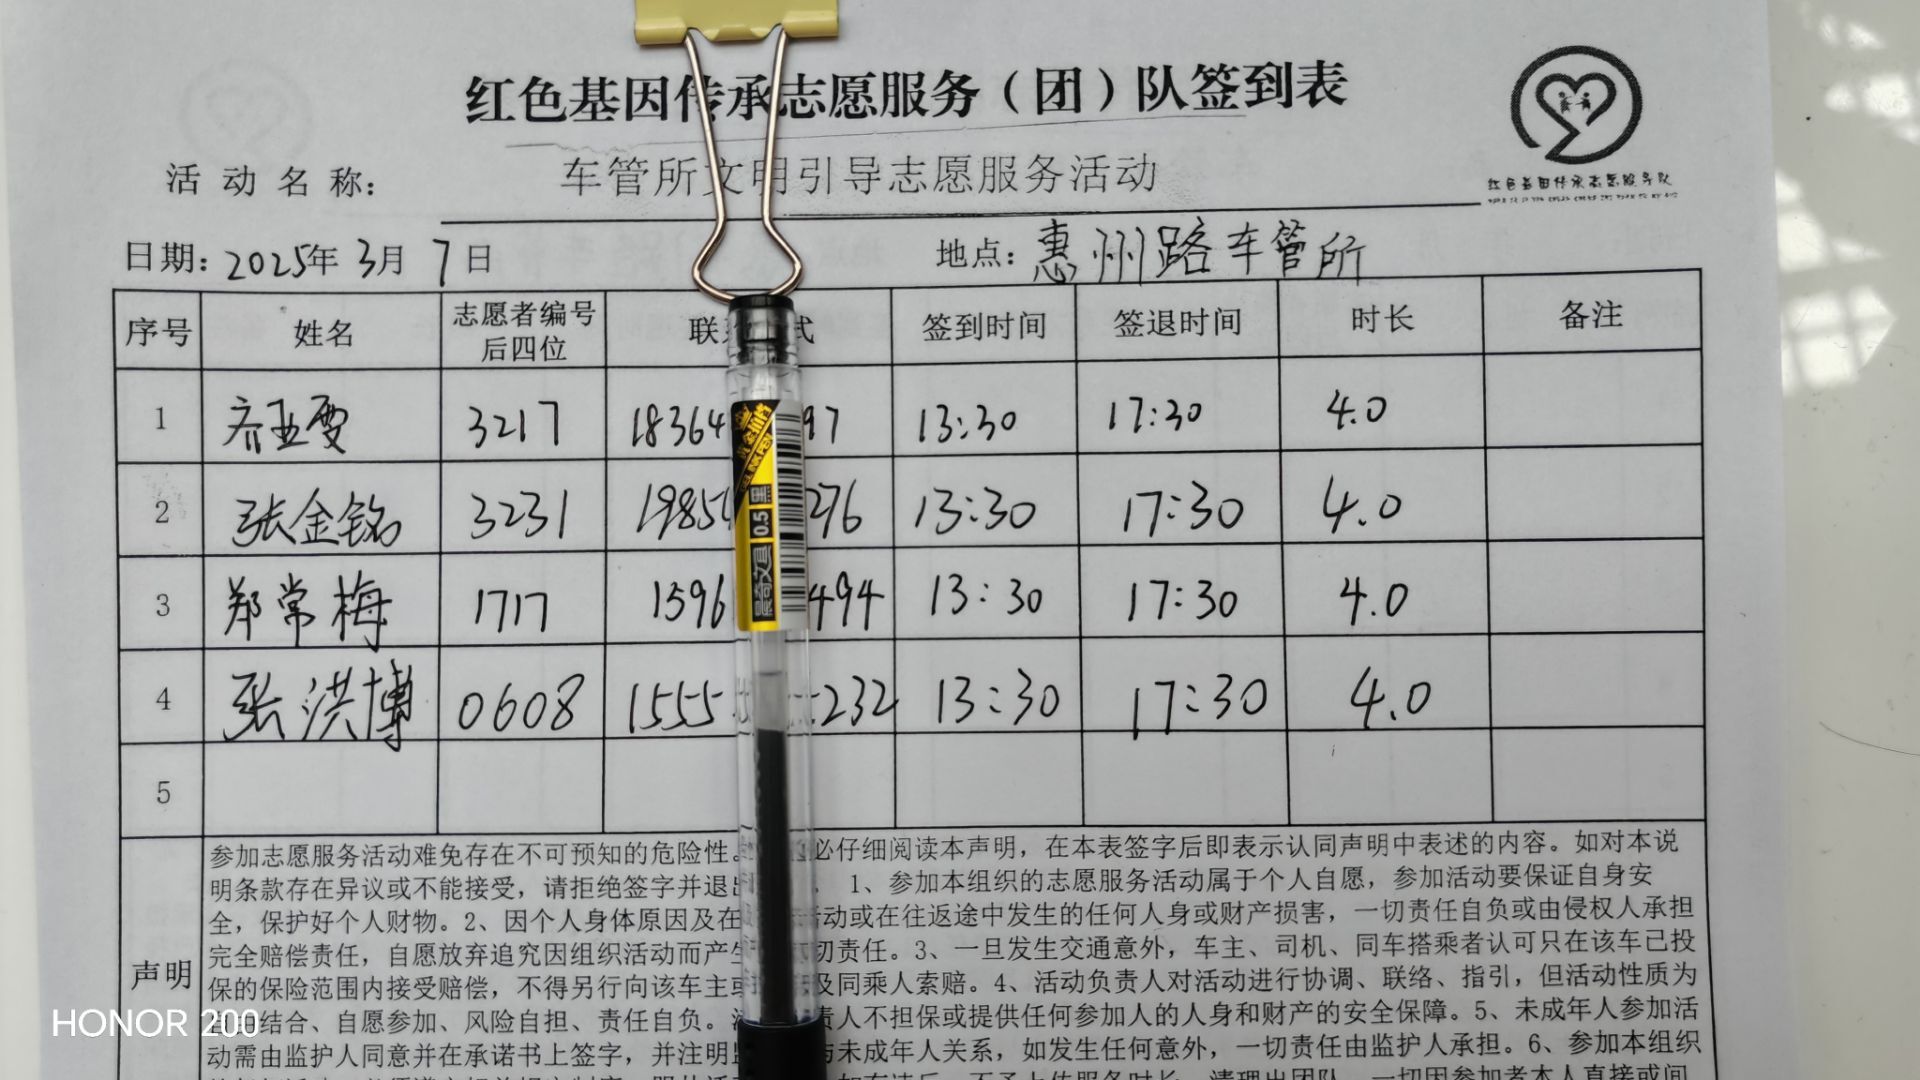 红色基因传承志愿服务（团）队签到表
红色基因传承志愿服务队
活动名称： 车管所文明引导志愿服务活动
日期：2025年3月7日 地点：惠州路车管所
序号 姓名 志愿者编号后四位 联 式 签到时间 签退时间 时长 备注
1 齐亚雯 3217 18364 97 13:30 17:30 4.0
2 张金铭 3231 1985 276 13:30 17:30 4.0
3 郑常梅 1717 1596 494 13:30 17:30 4.0
4 张洪博 0608 1555 232 13:30 17:30 4.0
5
0.5 黑
GEL INK PEN
声明
参加志愿服务活动难免存在不可预知的危险性。 必仔细阅读本声明，在本表签字后即表示认同声明中表述的内容。如对本说
明条款存在异议或不能接受，请拒绝签字并退出 1、参加本组织的志愿服务活动属于个人自愿，参加活动要保证自身安
全，保护好个人财物。2、因个人身体原因及在 活动或在往返途中发生的任何人身或财产损害，一切责任自负或由侵权人承担
完全赔偿责任，自愿放弃追究因组织活动而产生 切责任。3、一旦发生交通意外，车主、司机、同车搭乘者认可只在该车已投
保的保险范围内接受赔偿，不得另行向该车主或 及同乘人索赔。4、活动负责人对活动进行协调、联络、指引，但活动性质为
结合、自愿参加、风险自担、责任自负。 责人不担保或提供任何参加人的人身和财产的安全保障。5、未成年人参加活
动需由监护人同意并在承诺书上签字，并注明 与未成年人关系，如发生任何意外，一切责任由监护人承担。6、参加本组织
HONOR 200